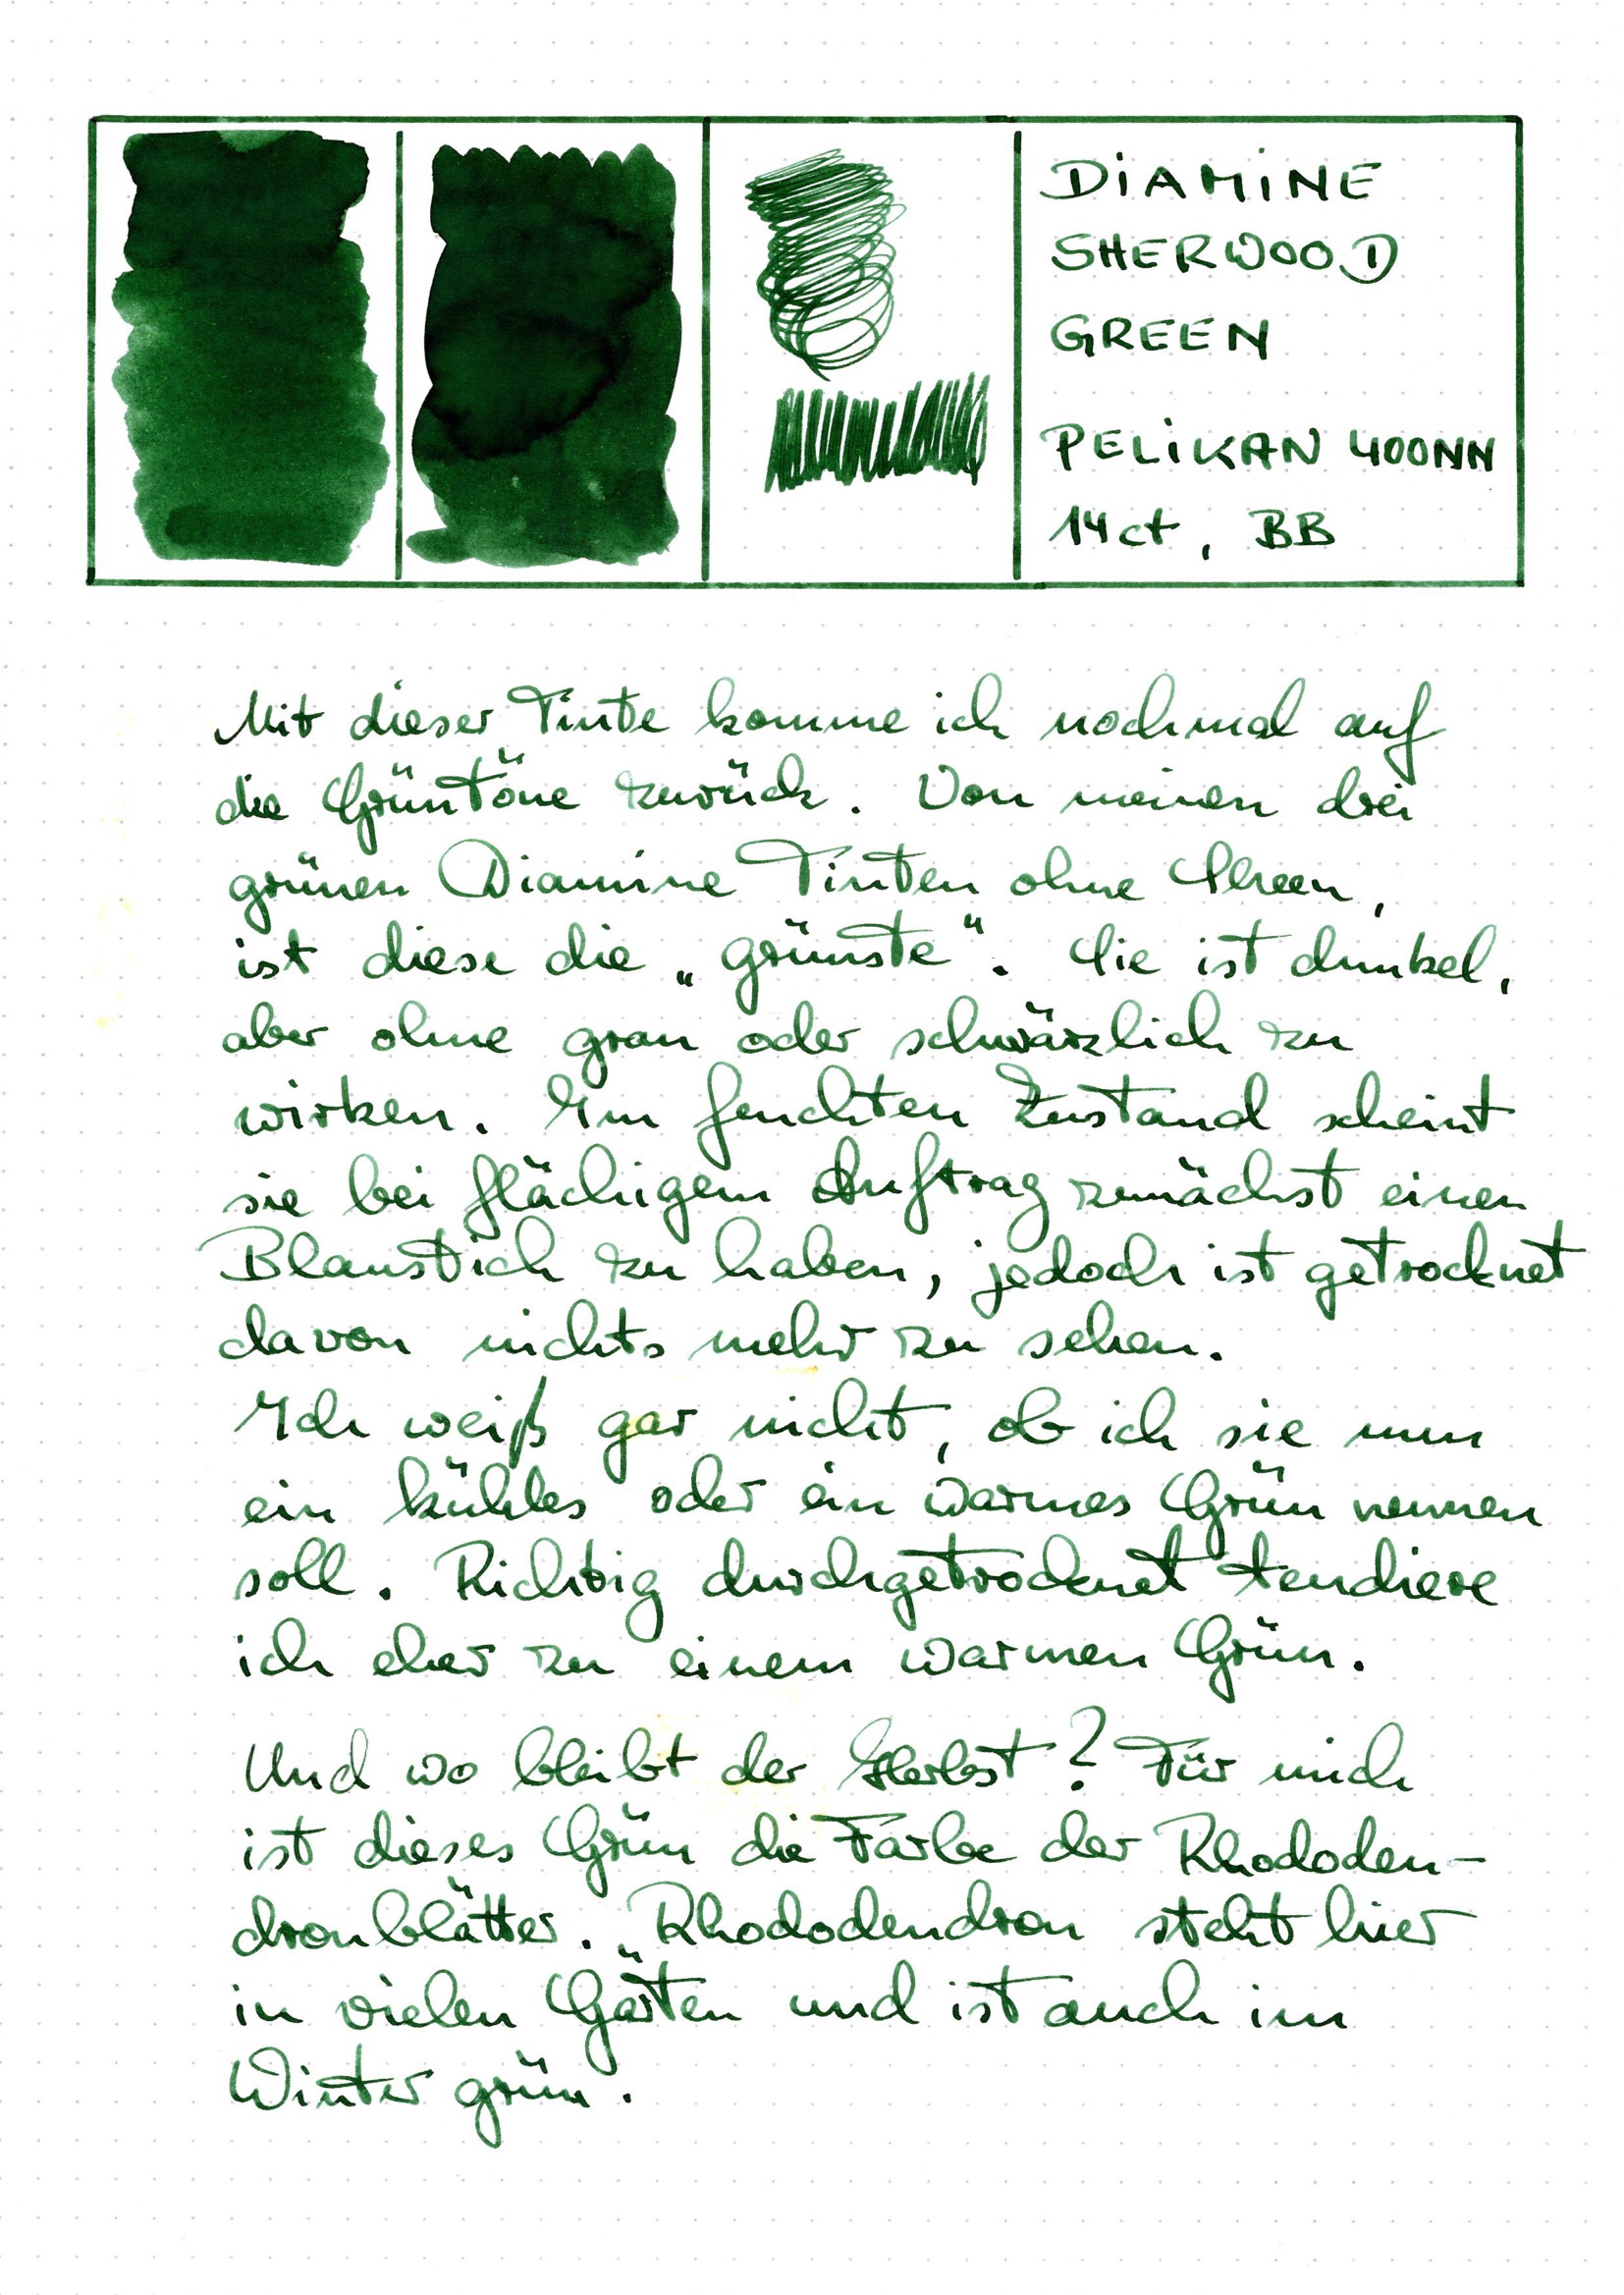 DiAMiNE
SHERWOOD
GREEN
PELiKAN 400NN
14ct, BB
Mit dieser Tinte komme ich nochmal auf
die Grüntöne zurück. Von meinen drei
grünen Diamine Tinten ohne Sheen,
ist diese die „grünste". Sie ist dunkel,
aber ohne grau oder schwärzlich zu
wirken. Im feuchten Zustand scheint
sie bei flächigem Auftrag zunächst einen
Blaustich zu haben, jedoch ist getrocknet
davon nichts mehr zu sehen.
Ich weiß gar nicht, ob ich sie nun
ein kühles oder ein warmes Grün nennen
soll. Richtig durchgetrocknet tendiere
ich eher zu einem warmen Grün.
Und wo bleibt der Herbst? Für mich
ist dieses Grün die Farbe der Rhododen-
dronblätter. Rhododendron steht hier
in vielen Gärten und ist auch im
Winter grün.